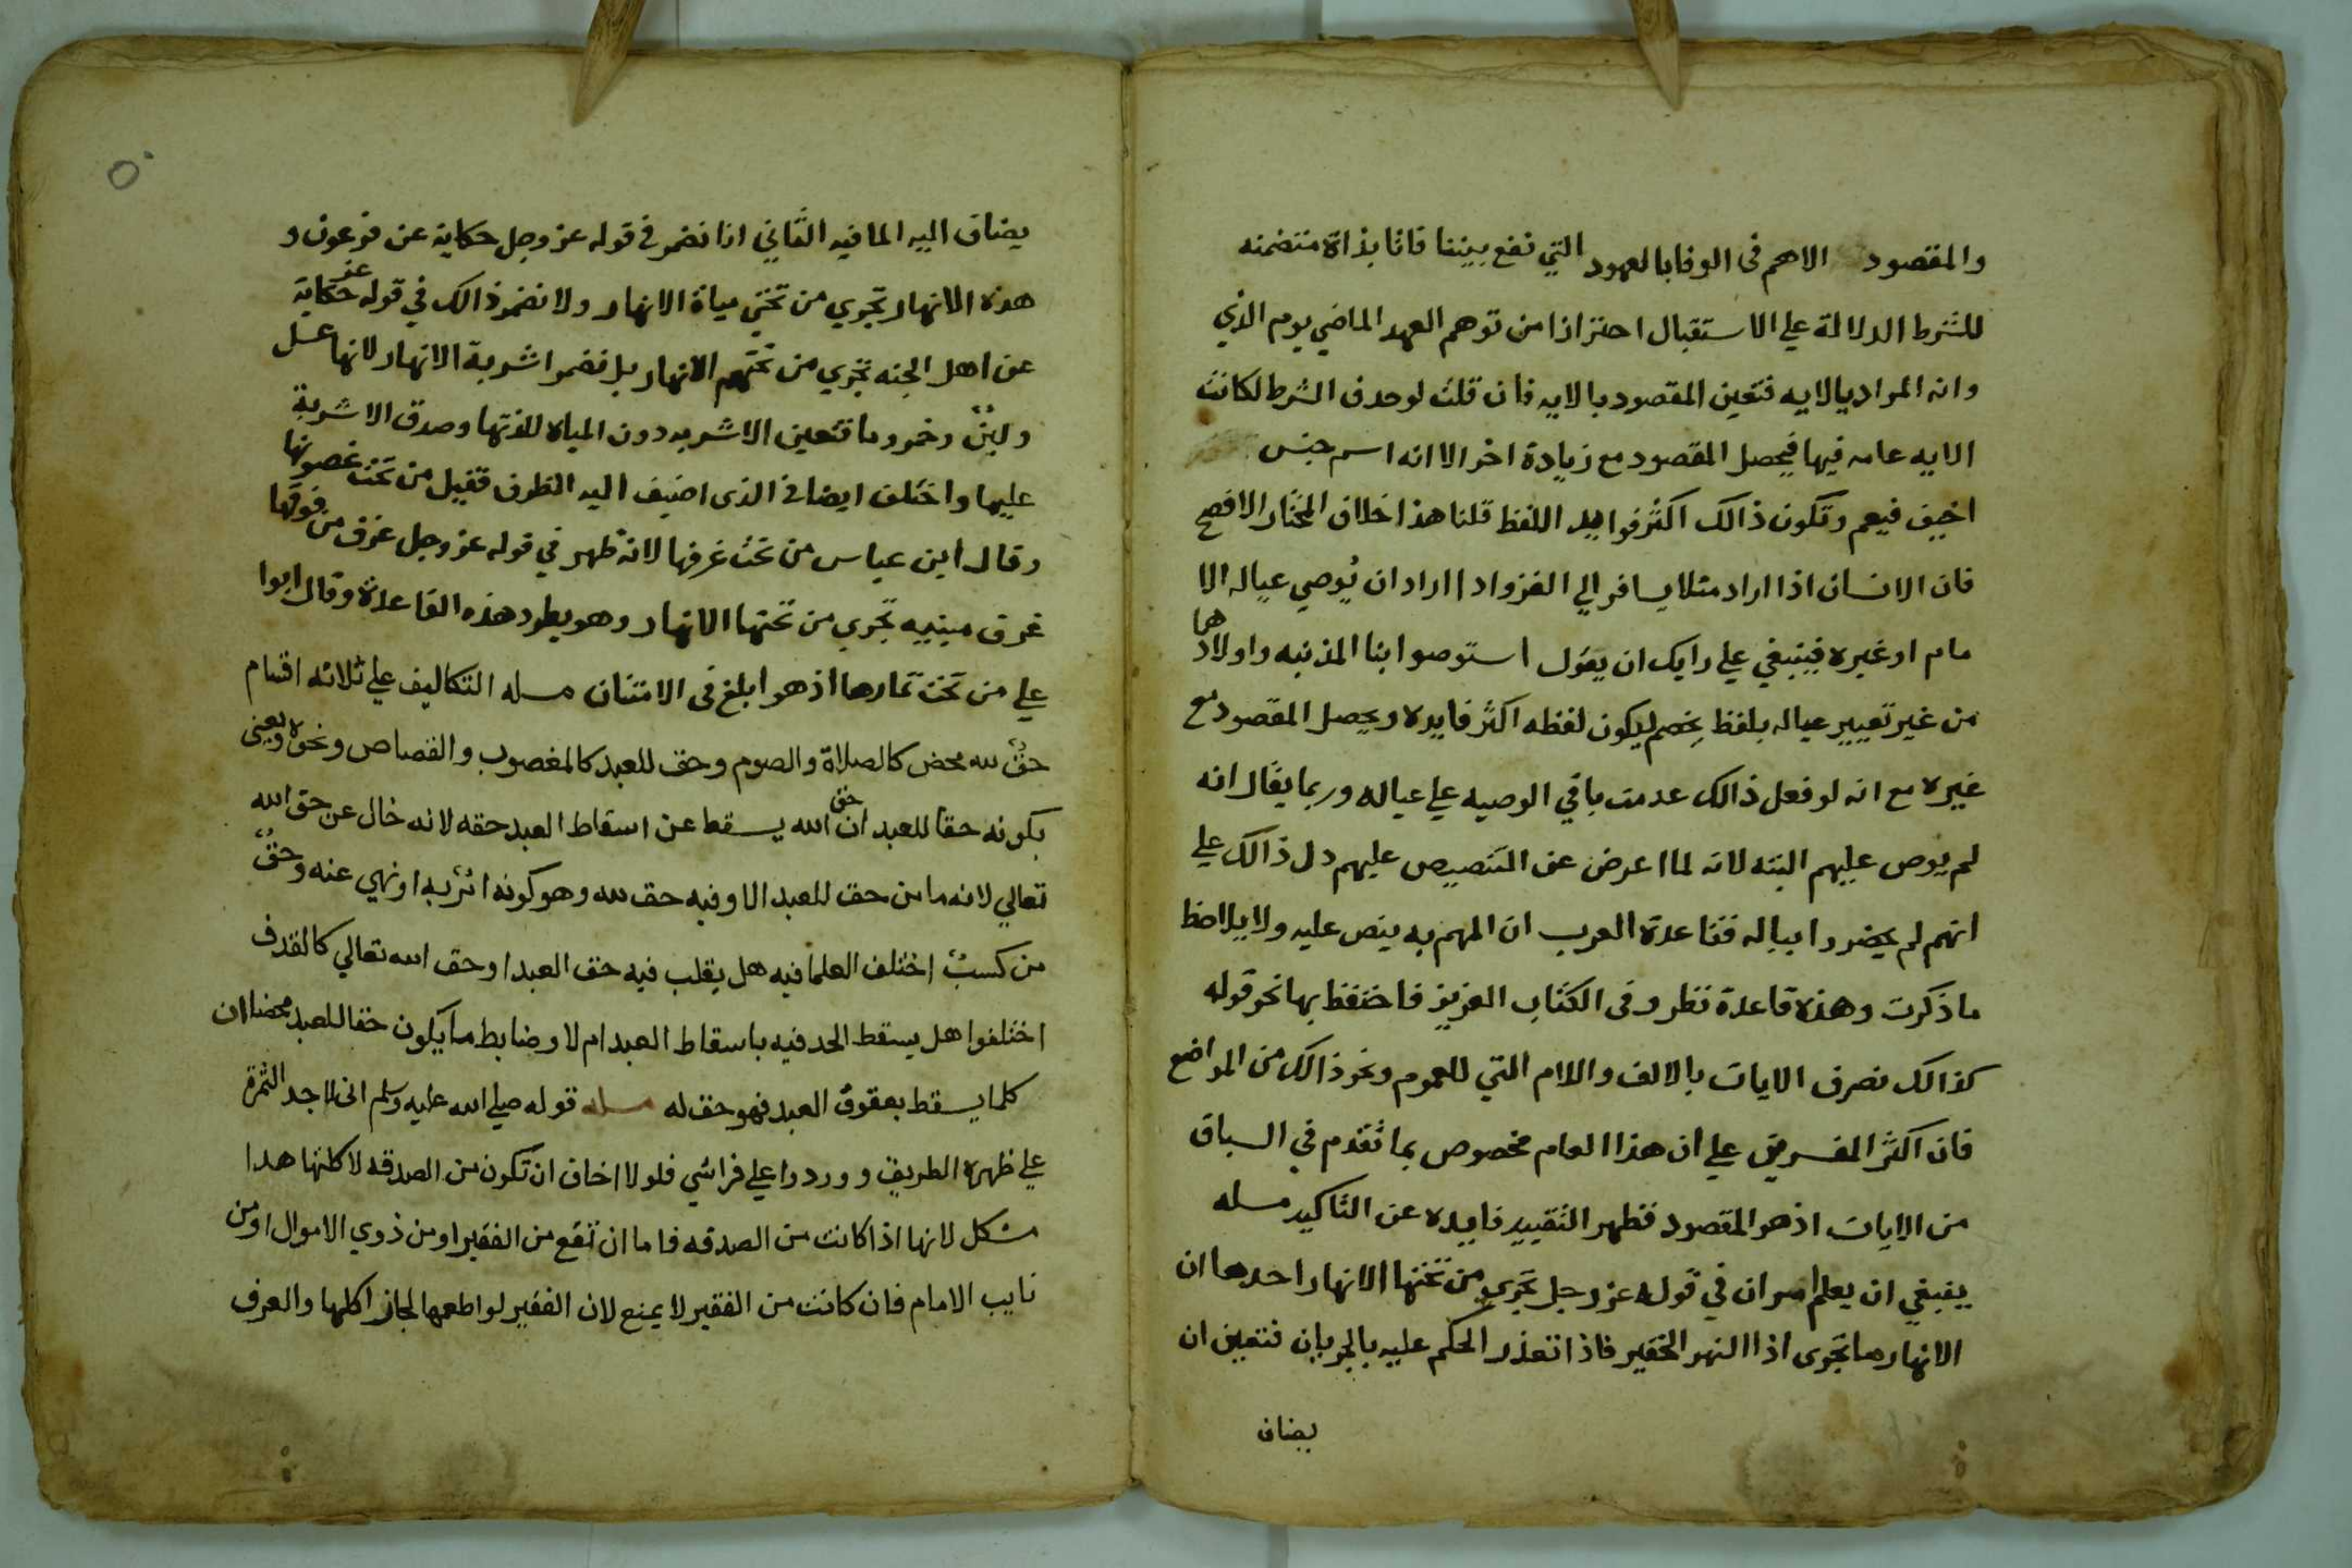 والمقصود الاهم فى الوفا بالعهود التي تقع بيننا فاتا بذاة متضمنه
للشرط الدلالة علي الاستقبال احترازا من توهم العهد الماضي يوم الذي
وانه المراد بالايه فتعين المقصود بالايه فان قلت لوحدف الشرط لكانت
الايه عامه فيها فيحصل المقصود مع زيادة اخر الا انه اسم جنس
اضيف فيعم وتكون ذالك اكثر فوايد اللفظ قلنا هذا خلاف المختار الافصح
فان الانسان اذا اراد مثلا يسافر الي الغزو اد ااراد ان يوصي عياله الا
مام او غيره فينبغي علي رايك ان يقول استوصوا بنا المذنبه واولادهما
من غير تعيير عياله بلفظ يخصم ليكون لفظه اكثر فايده ويحصل المقصود مع
غيره مع انه لو فعل ذالك عدمت باقي الوصيه علي عياله وربما يقال انه
لم يوص عليهم البته لانه لما اعرض عن التنصيص عليهم دل ذالك علي
انهم لم يحضروا بباله فقاعدة العرب ان المهم به ينص عليه ولا يلاحظ
ما ذكرت وهذه قاعدة تنظر وفى الكتاب العزيز فاحتفظ بها نحو قوله
كذالك نصرف الايات بالالف واللام التي للعموم ونحو ذالك من المواضع
فان اكثر المفسرين علي ان هذا العام مخصوص بما تقدم في السباق
من الايات اذ هو المقصود فظهر التقييد فايده عن التاكيد مسله
ينبغي ان يعلم امران في قوله عز وجل تجري من تحتها الانهار احدها ان
الانهار ما تجرى اذا النهر الحقير فاذا تعذر الحكم عليه بالجريان فتعين ان
يضاف
٥٠
يضاف اليه المافيه الثاني انا نضمر في قوله عز وجل حكاية عن فرعون و
هذه الانهار تجري من تحتي مياة الانهار ولا نضمر ذالك في قوله عز حكاية
عن اهل الجنه تجري من تحتهم الانهار بل نضمر اشربة الانهار لانها عسل
ولبنٌ وخمر وما فتعين الاشربه دون المياه للذتها وصدق الاشربة
عليها واختلف ايضا في الذى اضيف اليه الظرف فقيل من تحت غصونها
وقال ابن عباس من تحت غرفها لانه ظهر في قوله عز وجل غرف من فوقها
غرف مبنيه تجري من تحتها الانهار وهو يطرد هذه القاعدة وقال ابوا
علي من تحت ثمارها اذ هو ابلغ فى الامتنان مسله التكاليف علي ثلاثه اقسام
حقٌ لله محض كالصلاة والصوم وحق للعبد كالمغصوب والقصاص ونحوه ويعنى
بكونه حقا للعبد ان حق الله يسقط عن اسقاط العبد حقه لانه خال عن حق الله
تعالي لانه ما من حق للعبد الا وفيه حق لله وهو كونه امر به او نهي عنه وحقٌ
من كسبٌ اختلف العلما فيه هل يغلب فيه حق العبد او حق الله تعالي كالقدف
اختلفوا هل يسقط الحد فيه باسقاط العبد ام لا وضابط ما يكون حقا للعبد محضا ان
كلما يسقط بعقوق العبد فهو حق له مسله قوله صلي الله عليه وسلم انى لااجد الثمرة
علي ظهره الطريق ووردوا علي فراشي فلولا اخاف ان تكون من الصدقه لاكلتها هدا
مشكل لانها اذا كانت من الصدقه فاما ان تقع من الفقير او من ذوي الاموال او من
نايب الامام فان كانت من الفقير لا يمنع لان الفقير لو اطعمها لجاز اكلها والعرف